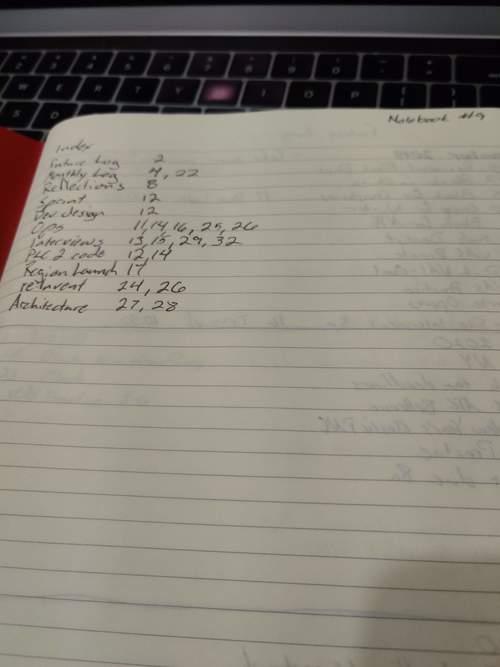 Notebook #9
Index
Future Log 2
Monthly Log 4, 22
Reflections 8
Sprint 12
Dev design 12
Ops 11, 14, 16, 25, 26
Interviews 13, 15, 29, 32
12, 14
Region Launch 17
reinvent 24, 26
Architecture 27, 28